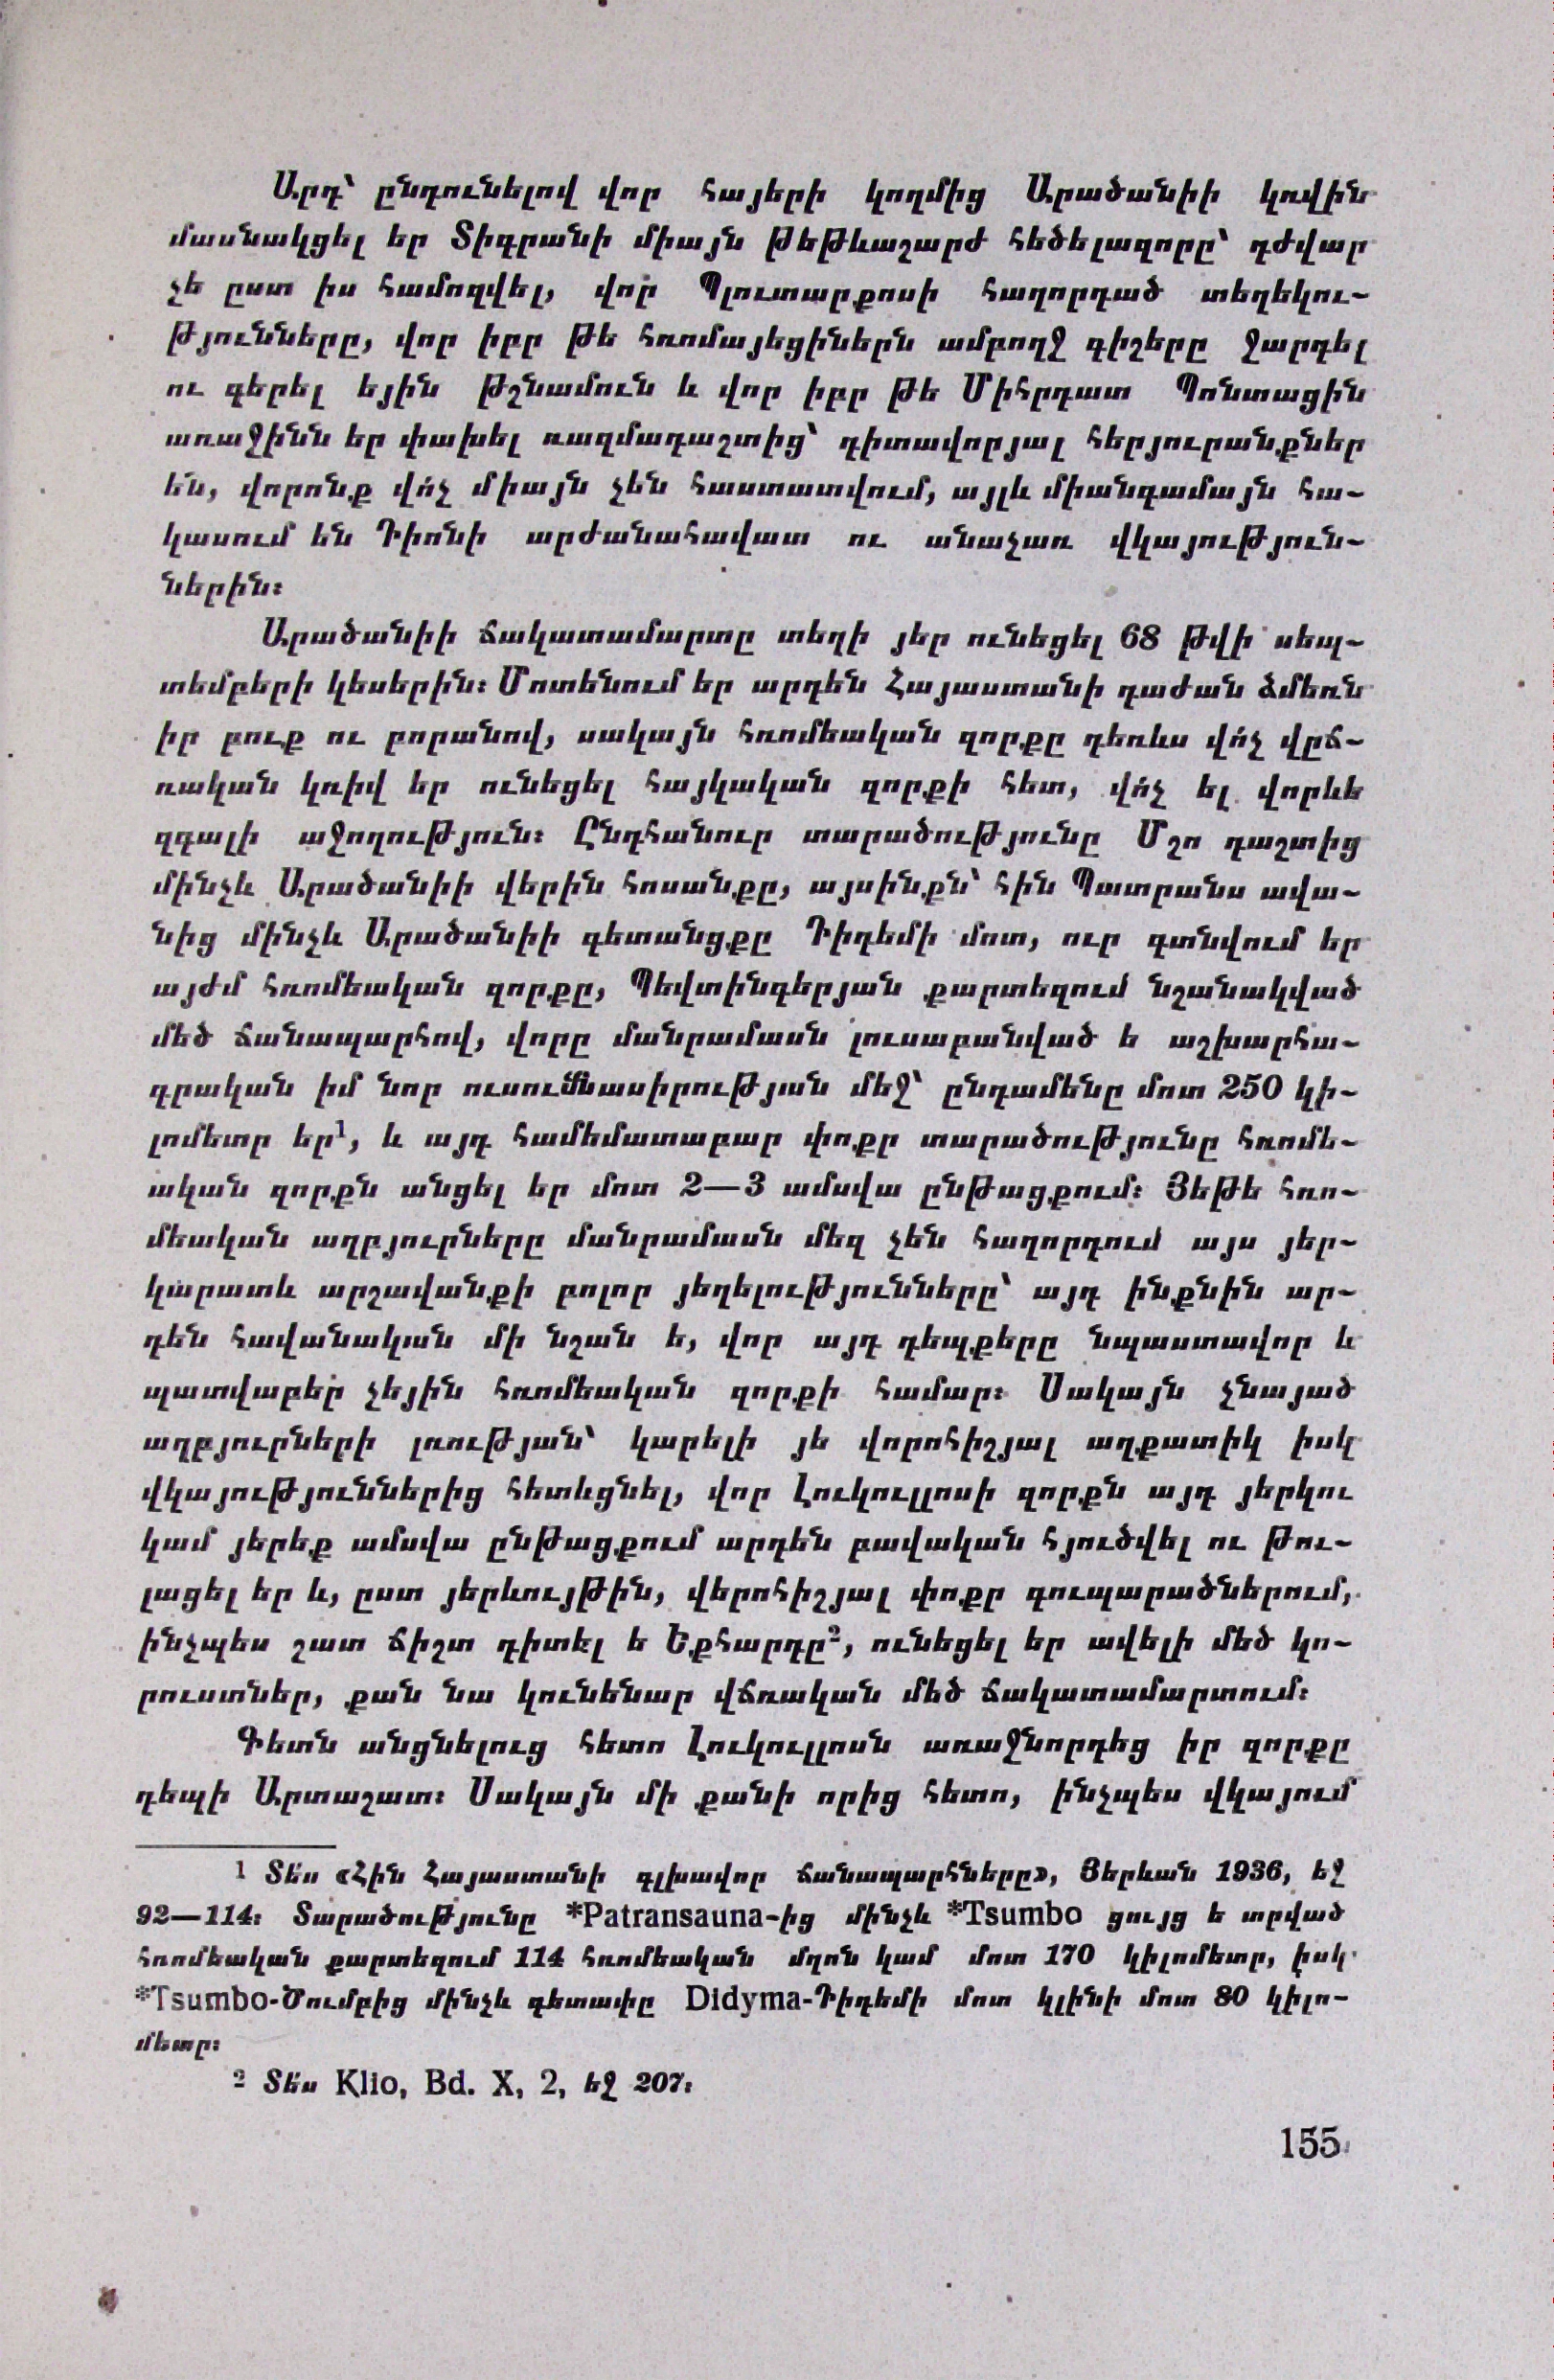 Արդ՝ ընդունելով վոր հայերի կողմից Արածանիի կռվին
մասնակցել եր Տիգրանի միայն թեթևաշարժ հեծելազորը՝ դժվար
չե ըստ իս համոզվել, վոր Պլուտարքոսի հաղորդած տեղեկու-
թյունները, վոր իբր թե հռոմայեցիներն ամբողջ գիշերը ջարդել
ու գերել եյին թշնամուն և վոր իբր թե Միհրդատ Պոնտացին
առաջինն եր փախել ռազմադաշտից՝ դիտավորյալ հերյուրանքներ
են, վորոնք վո՛չ միայն չեն հաստատվում, այլև միանգամայն հա-
կասում են Դիոնի արժանահավատ ու անաչառ վկայություն-
ներին։
Արածանիի ճակատամարտը տեղի յեր ունեցել 68 թվի սեպ-
տեմբերի կեսերին։ Մոտենում եր արդեն Հայաստանի դաժան ձմեռն
իր բուք ու բորանով, սակայն հռոմեական զորքը դեռևս վո՛չ վըճ-
ռական կռիվ եր ունեցել հայկական զորքի հետ, վո՛չ ել վորևե
զգալի աջողություն։ Ընդհանուր տարածությունը Մշո դաշտից
մինչև Արածանիի վերին հոսանքը, այսինքն՝ հին Պատրանս ավա-
նից մինչև Արածանիի գետանցքը Դիդեմի մոտ, ուր գտնվում եր
այժմ հռոմեական զորքը, Պեվտինգերյան քարտեզում նշանակված
մեծ ճանապարհով, վորը մանրամասն լուսաբանված ե աշխարհա-
գրական իմ նոր ուսումնասիրության մեջ՝ ընդամենը մոտ 250 կի-
լոմետր եր¹, և այդ համեմատաբար փոքր տարածությունը հռոմե-
ական զորքն անցել եր մոտ 2—3 ամսվա ընթացքում։ Յեթե հռո-
մեական աղբյուրները մանրամասն մեզ չեն հաղորդում այս յեր-
կարատև արշավանքի բոլոր յեղելությունները՝ այդ ինքնին ար-
դեն հավանական մի նշան ե, վոր այդ դեպքերը նպաստավոր և
պատվաբեր չեյին հռոմեական զորքի համար։ Սակայն չնայած
աղբյուրների լռության՝ կարելի յե վորոհիշյալ աղքատիկ իսկ
վկայություններից հետևցնել, վոր Լուկուլլոսի զորքն այդ յերկու
կամ յերեք ամսվա ընթացքում արդեն բավական հյուծվել ու թու-
լացել եր և, ըստ յերևույթին, վերոհիշյալ փոքր գուպարածներում,
ինչպես շատ ճիշտ դիտել ե Եքհարդը², ունեցել եր ավելի մեծ կո-
րուստներ, քան նա կունենար վճռական մեծ ճակատամարտում։
Գետն անցնելուց հետո Լուկուլլոսն առաջնորդեց իր զորքը
դեպի Արտաշատ։ Սակայն մի քանի որից հետո, ինչպես վկայում
¹ Տե՛ս «Հին Հայաստանի գլխավոր ճանապարհները», Յերևան 1936, եջ
92—114։ Տարածությունը *Patransauna-ից մինչև *Tsumbo ցույց ե տրված
հռոմեական քարտեզում 114 հռոմեական մղոն կամ մոտ 170 կիլոմետր, իսկ
*Tsumbo-Ծումբից մինչև գետափը Didyma-Դիդեմի մոտ կլինի մոտ 80 կիլո-
մետր։
² Տե՛ս Klio, Bd. X, 2, եջ 207։
155